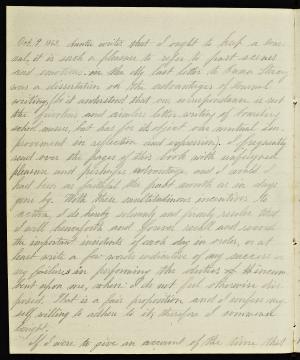 Oct. 9, 1863. Auntie writes that I ought to keep a Jour-
nal, it is such a pleasure to refer to past scenes
and emotions. My last letter to Emma Strong
was a dissertation on the advantages of Journal
writing, for it is understood that our correspondence is not
the frivolous and aimless letter writing of boarding
school misses, but has for its object our mutual Im-
provement in reflection and expression. I frequently
read over the pages of this book with unfeigned
pleasure and perhaps advantage and I would I
had been as faithful the past month as in days
gone by. With these incentives to
action, I do hereby solemnly and firmly resolve that
I will henceforth and forever recall and record
the important incidents of each day in order, or at
least write a few words indicative of my success or
my failures in performing the duties of it incum-
bent upon me, when I do not feel otherwise dis-
posed. That is a fair proposition and I confess my-
self willing to adhere to it, therefore I commence
tonight.
If I were to give an account of the time that